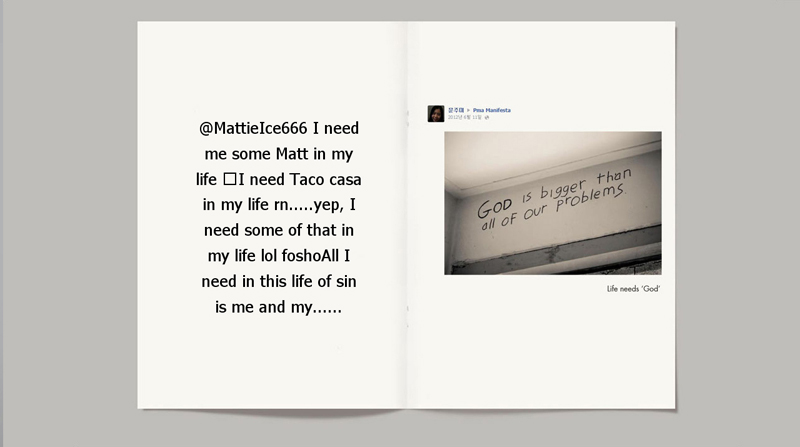 @MattieIce666 I need
me some Matt in my
life □I need Taco casa
in my life rn.....yep, I
need some of that in
my life lol foshoAll I
need in this life of sin
is me and my......
문주미 ▸ Pma Manifesta
2012년 4월 13일
GOD is bigger than
all of our problems.
Life needs 'God'